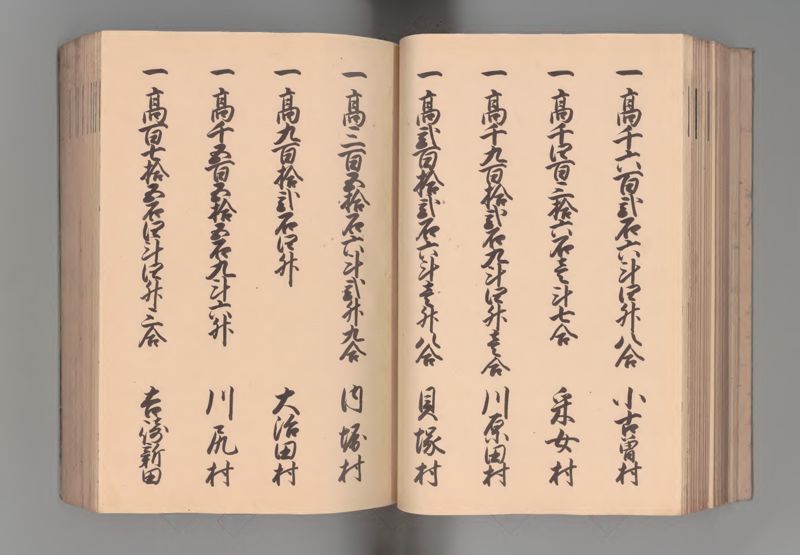 一 高千六百弐石六斗四升八合 小古曽村
一 高千四百三拾六石壱斗七合 采女村
一 高千九百拾弐石九斗四升壱合 川原田村
一 高弐百拾弐石六斗壱升八合 貝塚村
一 高二百五拾石六斗弐升九合 内堀村
一 高九百拾弐石四升 大治田村
一 高千五百五拾五石九斗六升 川尻村
一 高百七拾五石四斗四升三合 吉崎新田